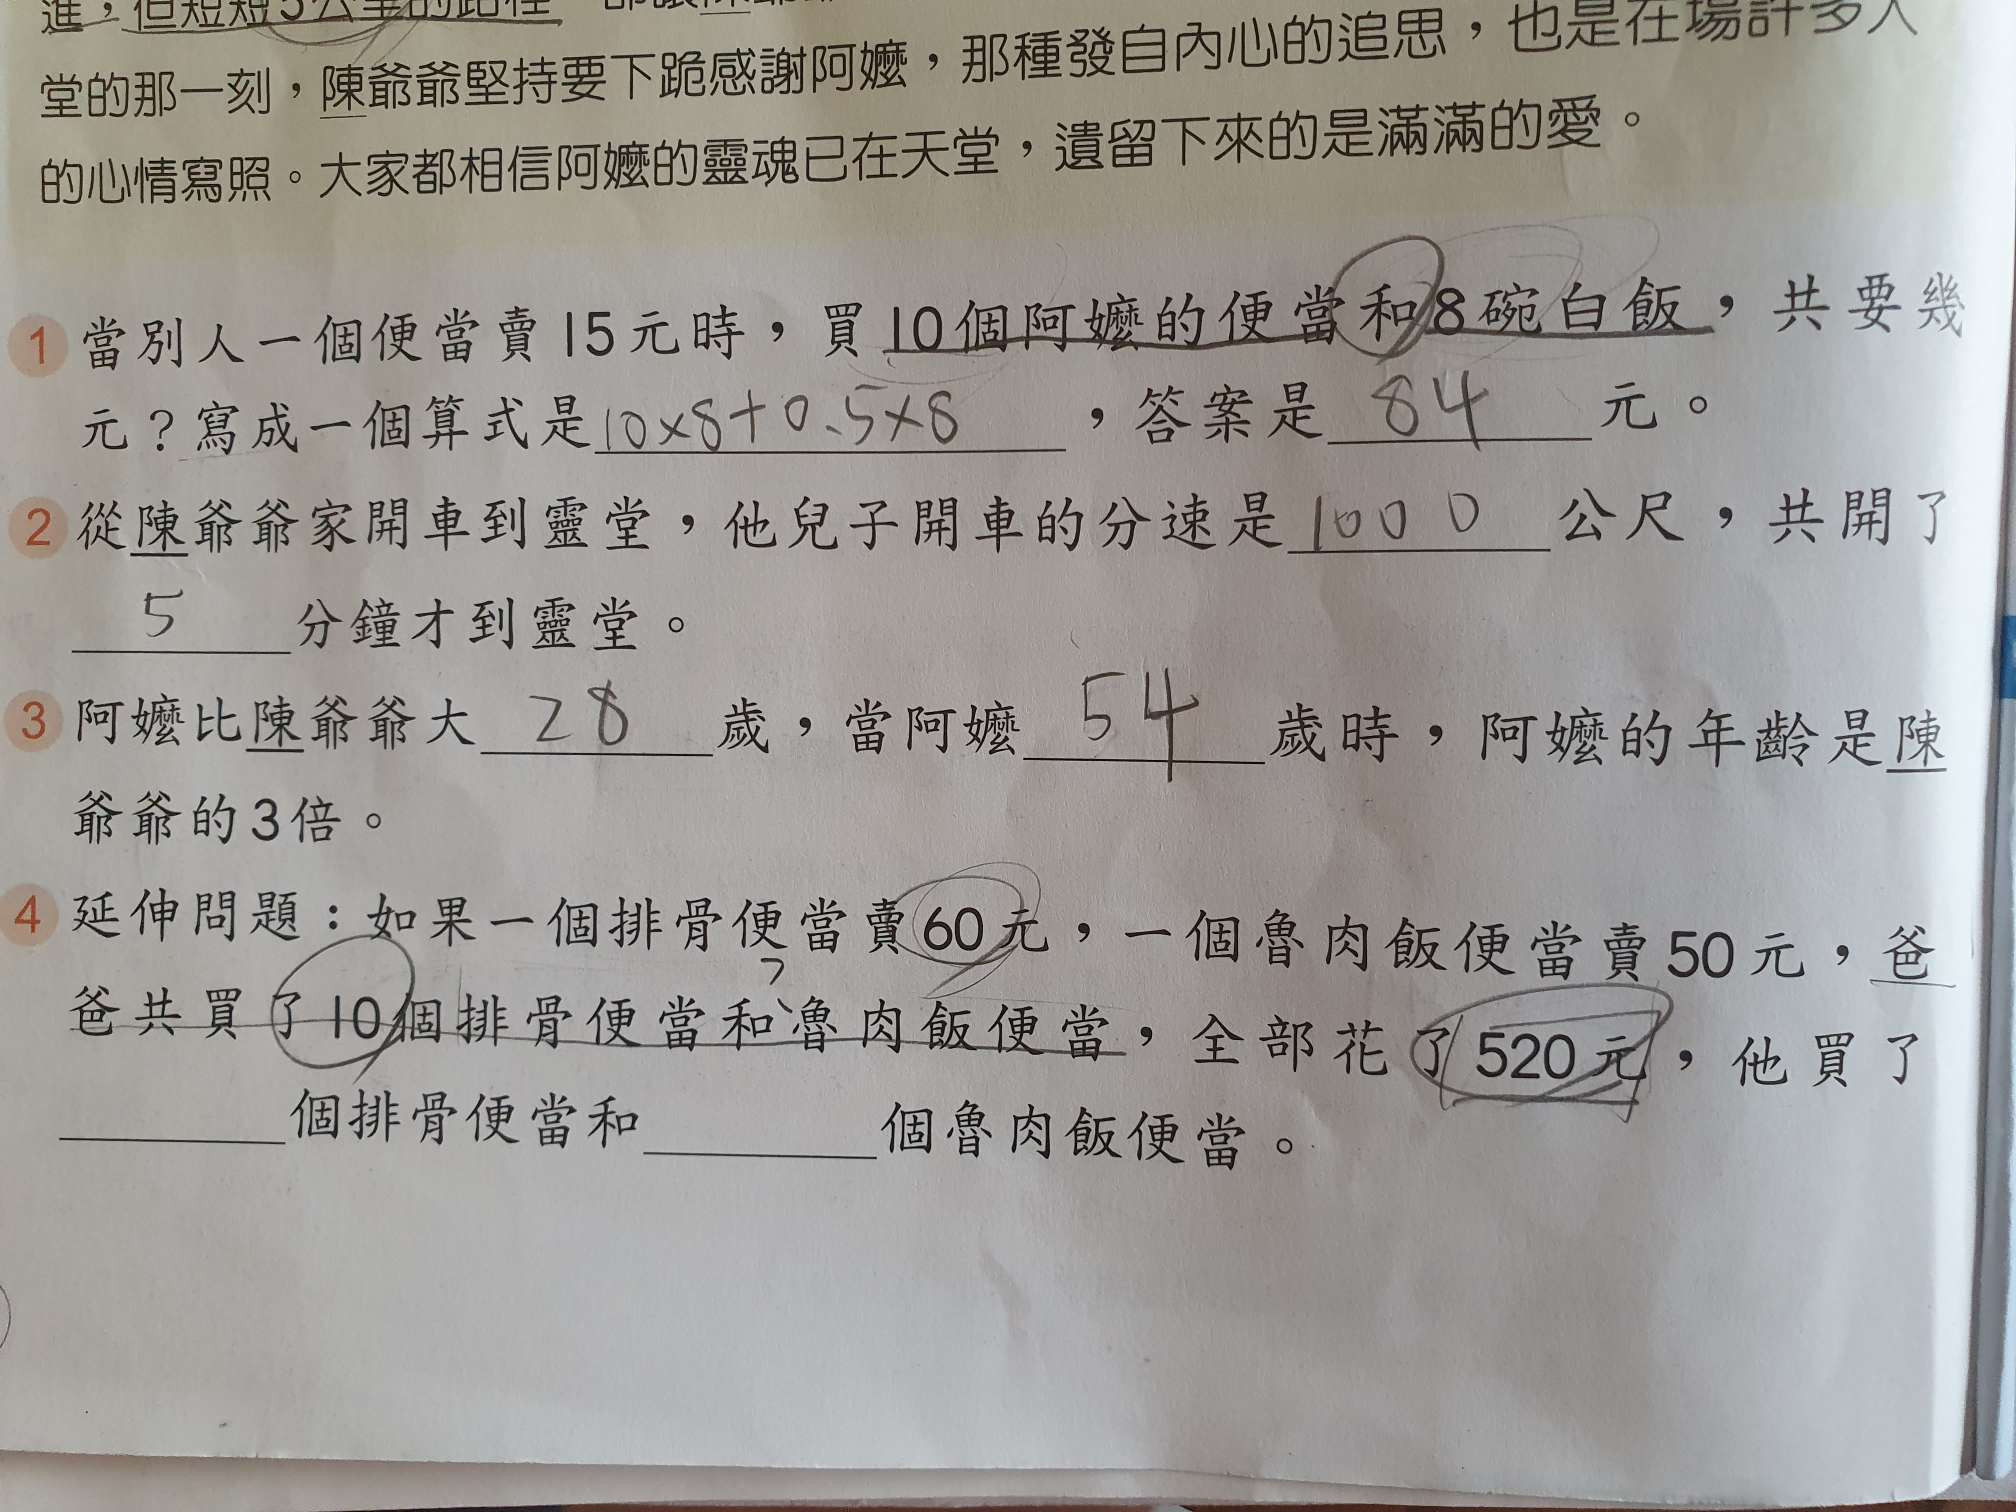 進，但短短5公里的路程
堂的那一刻，陳爺爺堅持要下跪感謝阿嬤，那種發自內心的追思，也是在場許多人
的心情寫照。大家都相信阿嬤的靈魂已在天堂，遺留下來的是滿滿的愛。
1 當別人一個便當賣15元時，買10個阿嬤的便當和8碗白飯，共要幾
元？寫成一個算式是10×8+0.5×8，答案是84元。
2 從陳爺爺家開車到靈堂，他兒子開車的分速是1000公尺，共開了
5分鐘才到靈堂。
3 阿嬤比陳爺爺大28歲，當阿嬤54歲時，阿嬤的年齡是陳
爺爺的3倍。
4 延伸問題：如果一個排骨便當賣60元，一個魯肉飯便當賣50元，爸
爸共買了10個排骨便當和魯肉飯便當，全部花了520元，他買了
____個排骨便當和____個魯肉飯便當。